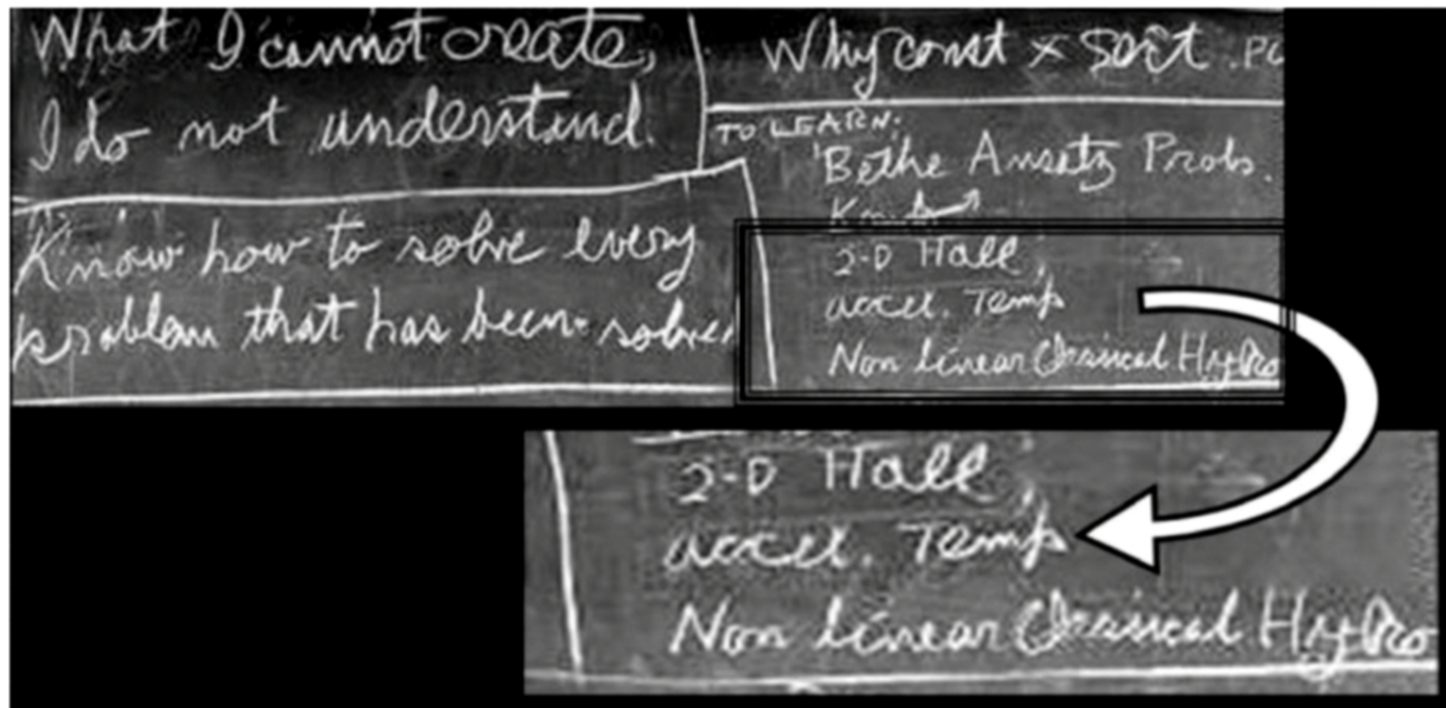 What I cannot create,
I do not understand.
Know how to solve every
problem that has been solve
Why const × sort . PO
TO LEARN:
Bethe Ansatz Probs.
Kondo
2-D Hall,
accel. Temp
Non linear Classical Hydro
2-D Hall,
accel. Temp
Non linear Classical Hydro